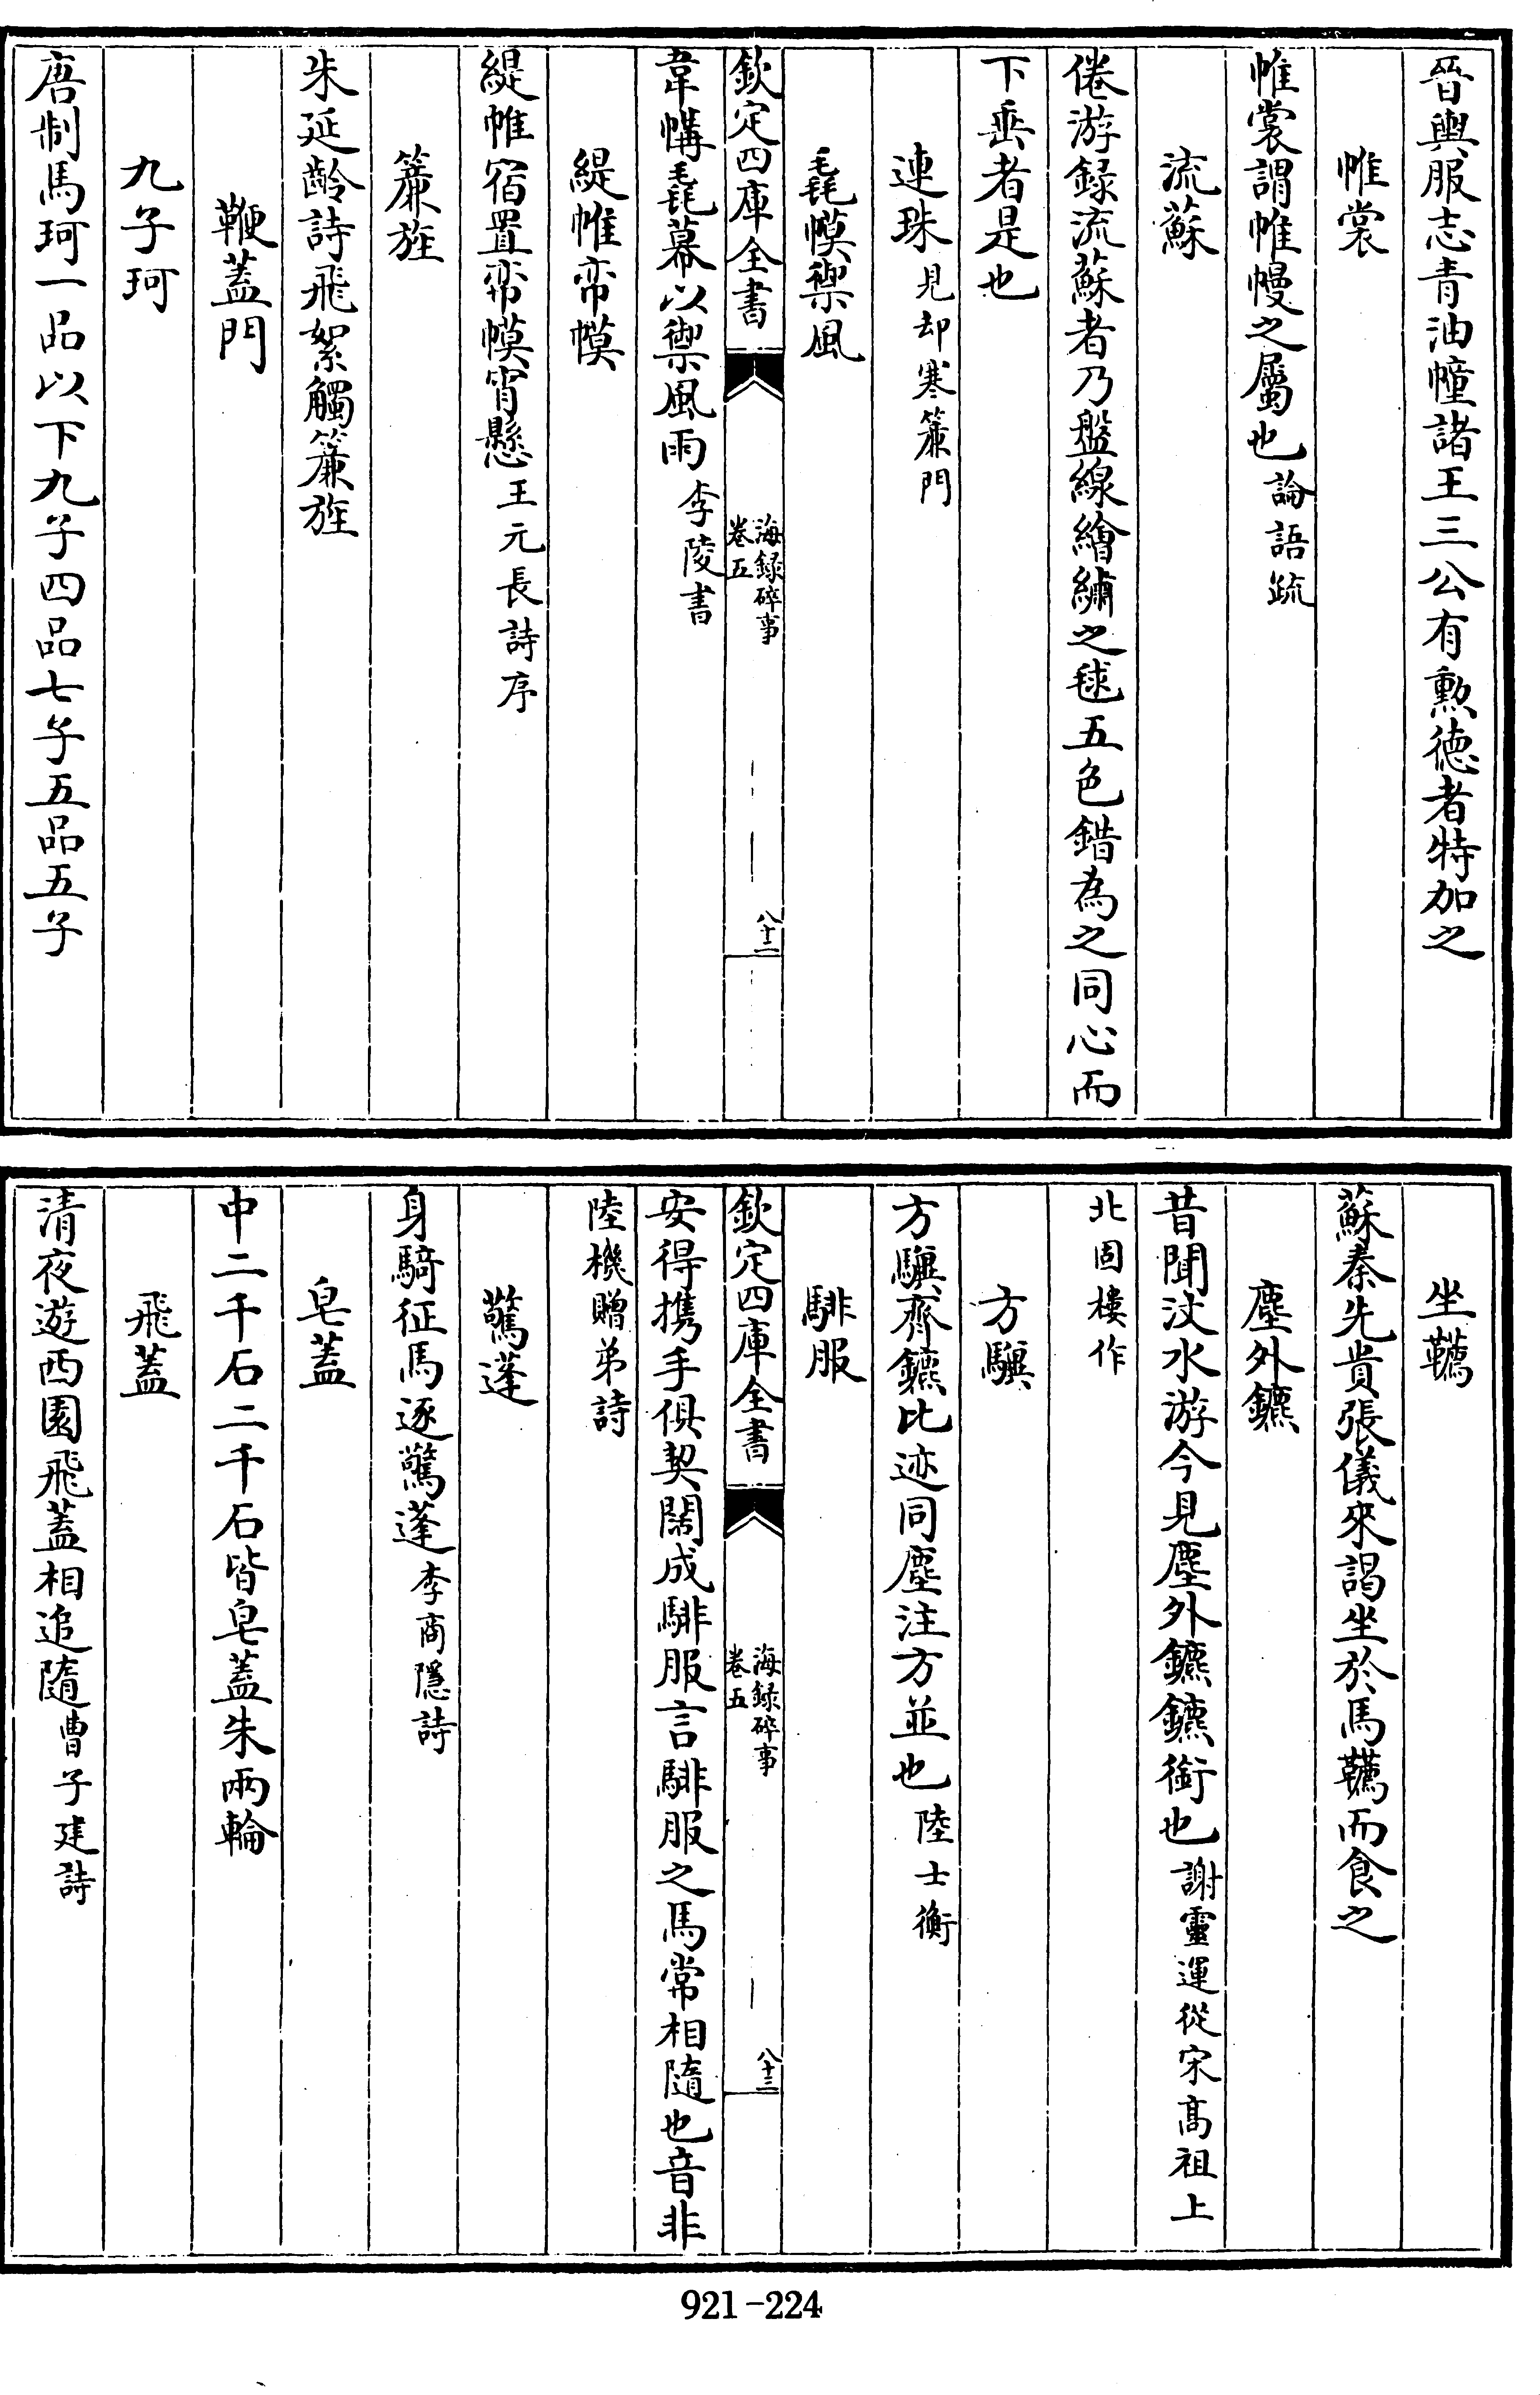 晉輿服志青油幢諸王三公有勲徳者特加之
帷裳
帷裳謂帷幔之屬也論語疏
流蘇
倦游録流蘇者乃盤線繪繡之毬五色錯為之同心而
下垂者是也
連珠見却寒簾門
毳幙禦風
欽定四庫全書
海録碎事
卷五
八十二
韋韝毳幕以禦風雨李陵書
緹帷帟幙
緹帷宿置帟幙宵懸王元長詩序
簾旌
朱延齡詩飛絮觸簾旌
鞭蓋門
九子珂
唐制馬珂一品以下九子四品七子五品五子
坐韉
蘇秦先貴張儀來謁坐於馬韉而食之
塵外鑣
昔聞汶水游今見塵外鑣鑣銜也謝靈運從宋髙祖上
北固樓作
方驥
方驥齊鑣比迹同塵注方並也陸士衡
騑服
欽定四庫全書
海録碎事
卷五
八十三
安得携手俱契闊成騑服言騑服之馬常相隨也音非
陸機贈弟詩
驚蓬
身騎征馬逐驚蓬李商隱詩
皂蓋
中二千石二千石皆皂蓋朱兩輪
飛蓋
清夜遊西園飛蓋相追隨曹子建詩
921-224